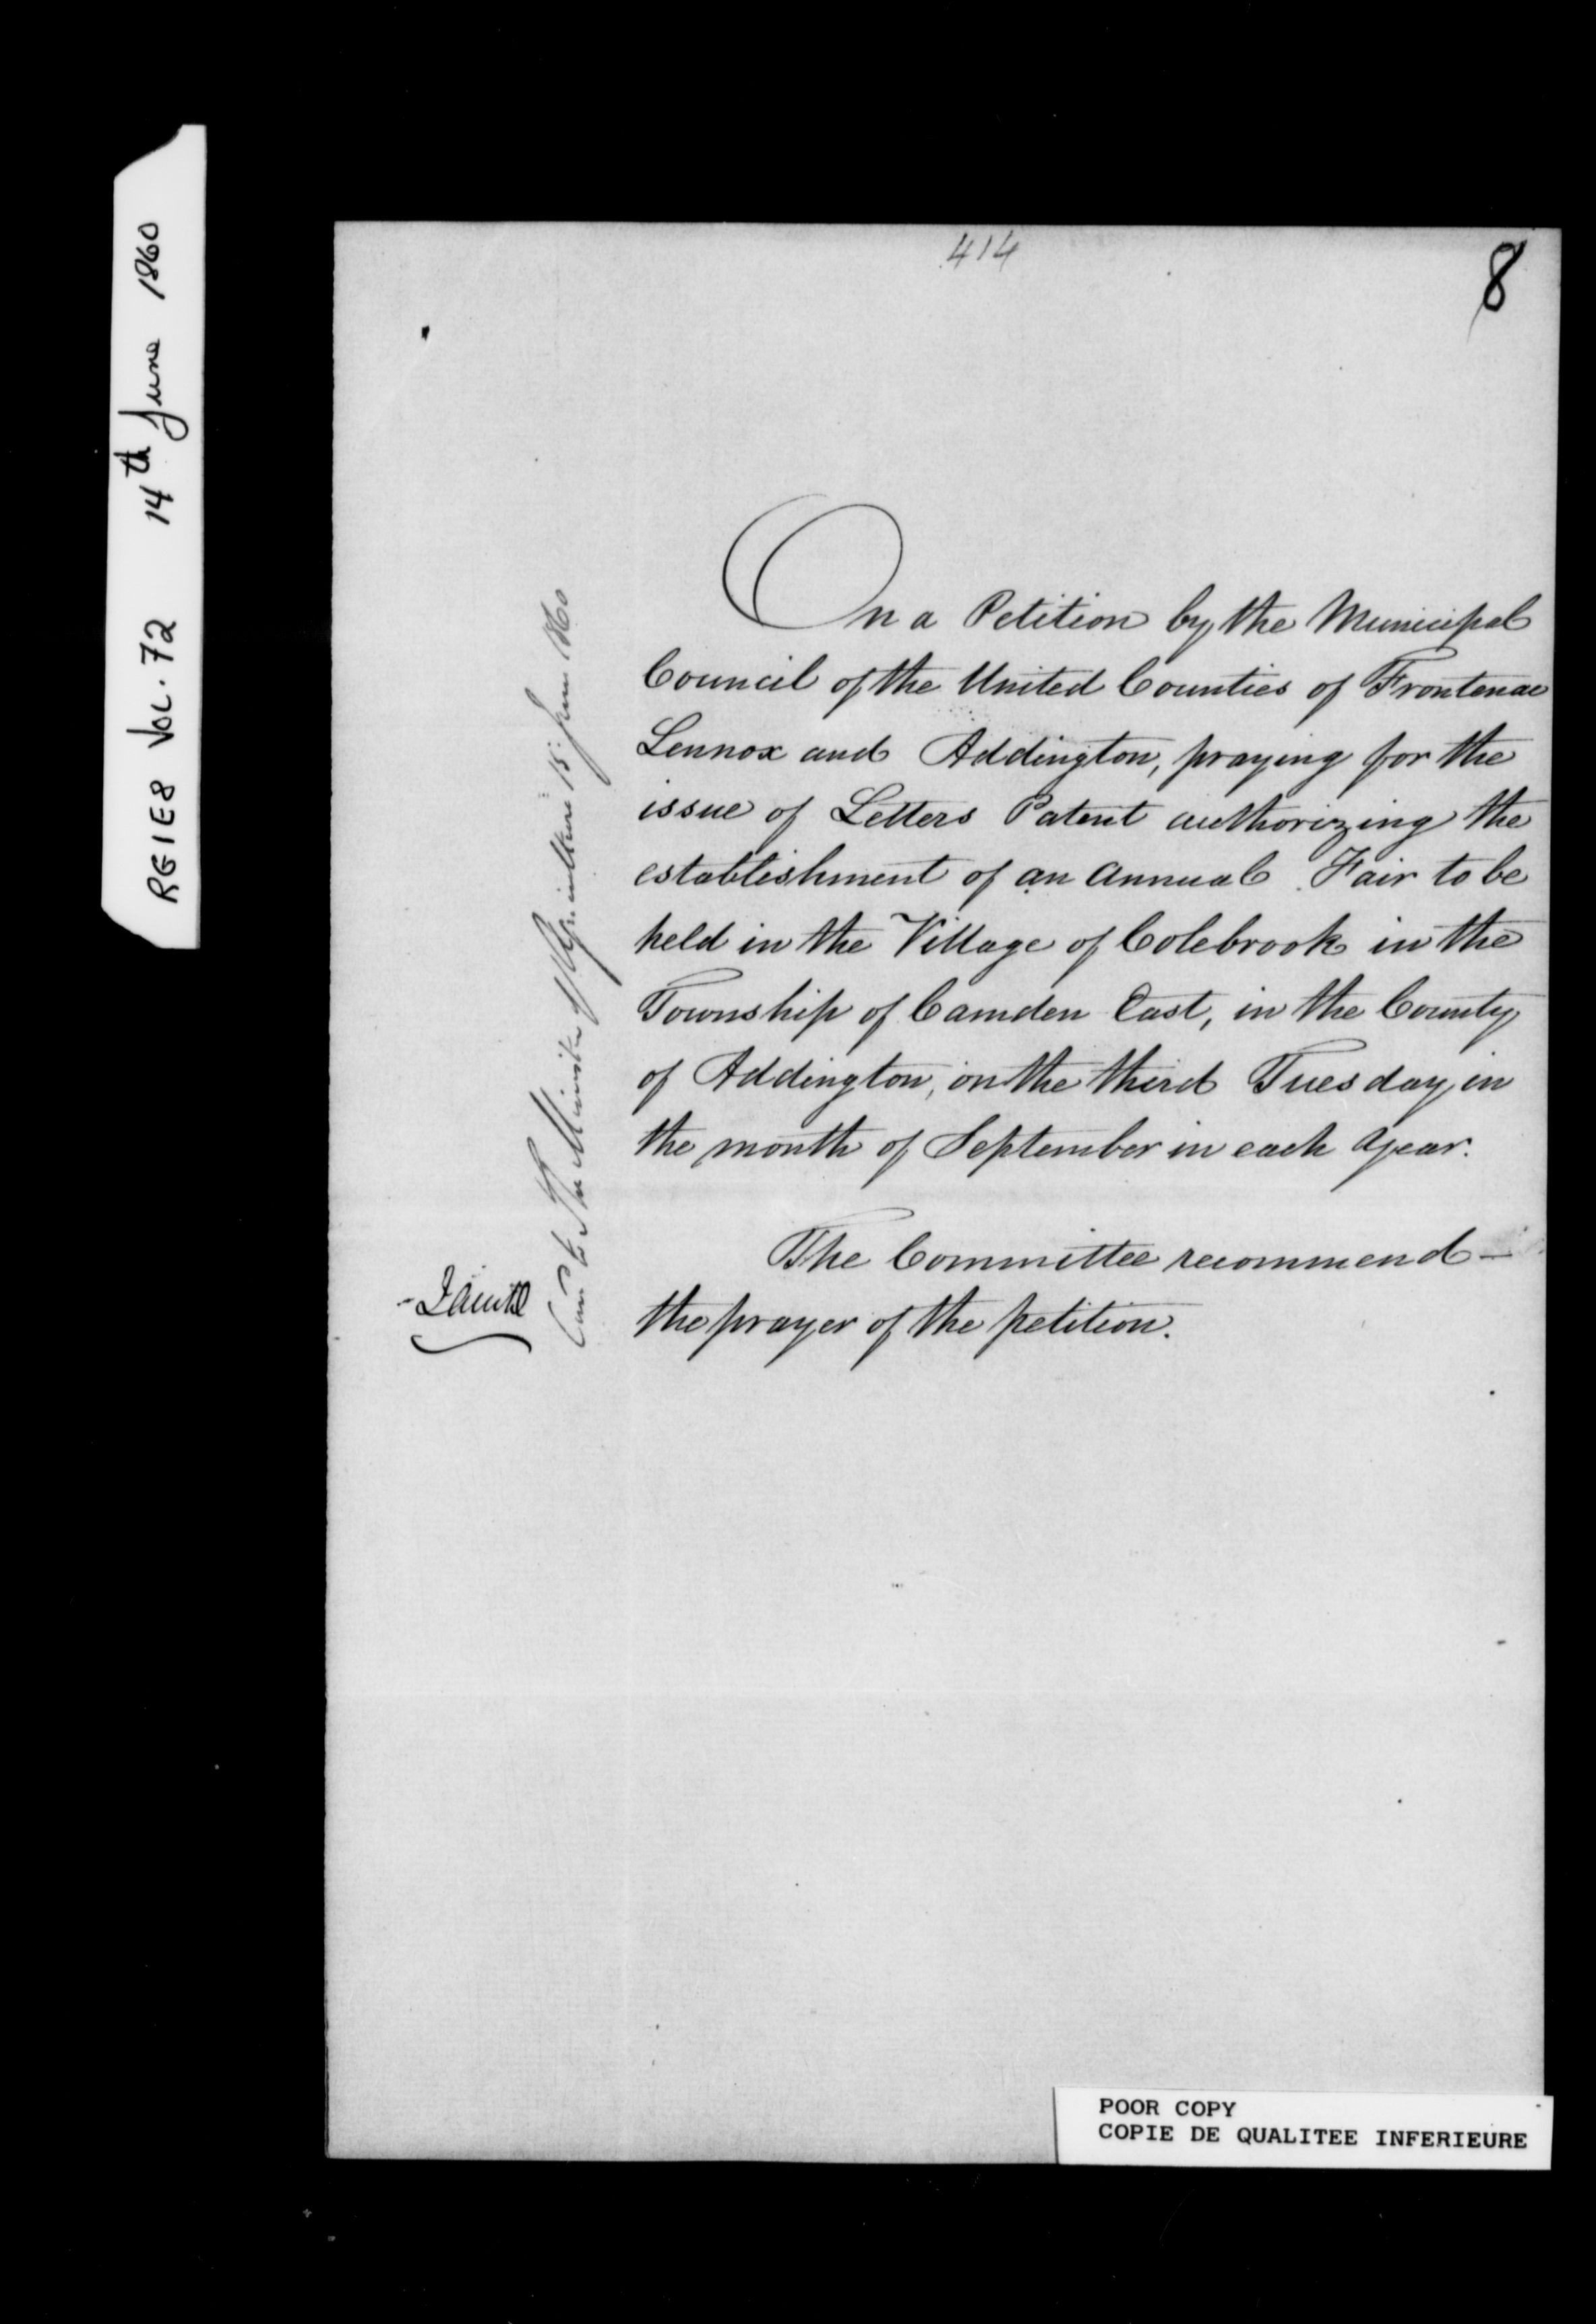 RG1E8 Vol. 72 14th June 1860
414
8
On a Petition by the Municipal
Council of the United Counties of Frontenac
Lennox and Addington, praying for the
issue of Letters Patent authorizing the
establishment of an Annual Fair to be
held in the Village of Colebrook in the
Township of Camden East, in the County
of Addington, on the third Tuesday in
the month of September in each year.
The Committee recommend —
the prayer of the petition.
to The Minister of Agriculture 15: June 1860
POOR COPY
COPIE DE QUALITEE INFERIEURE